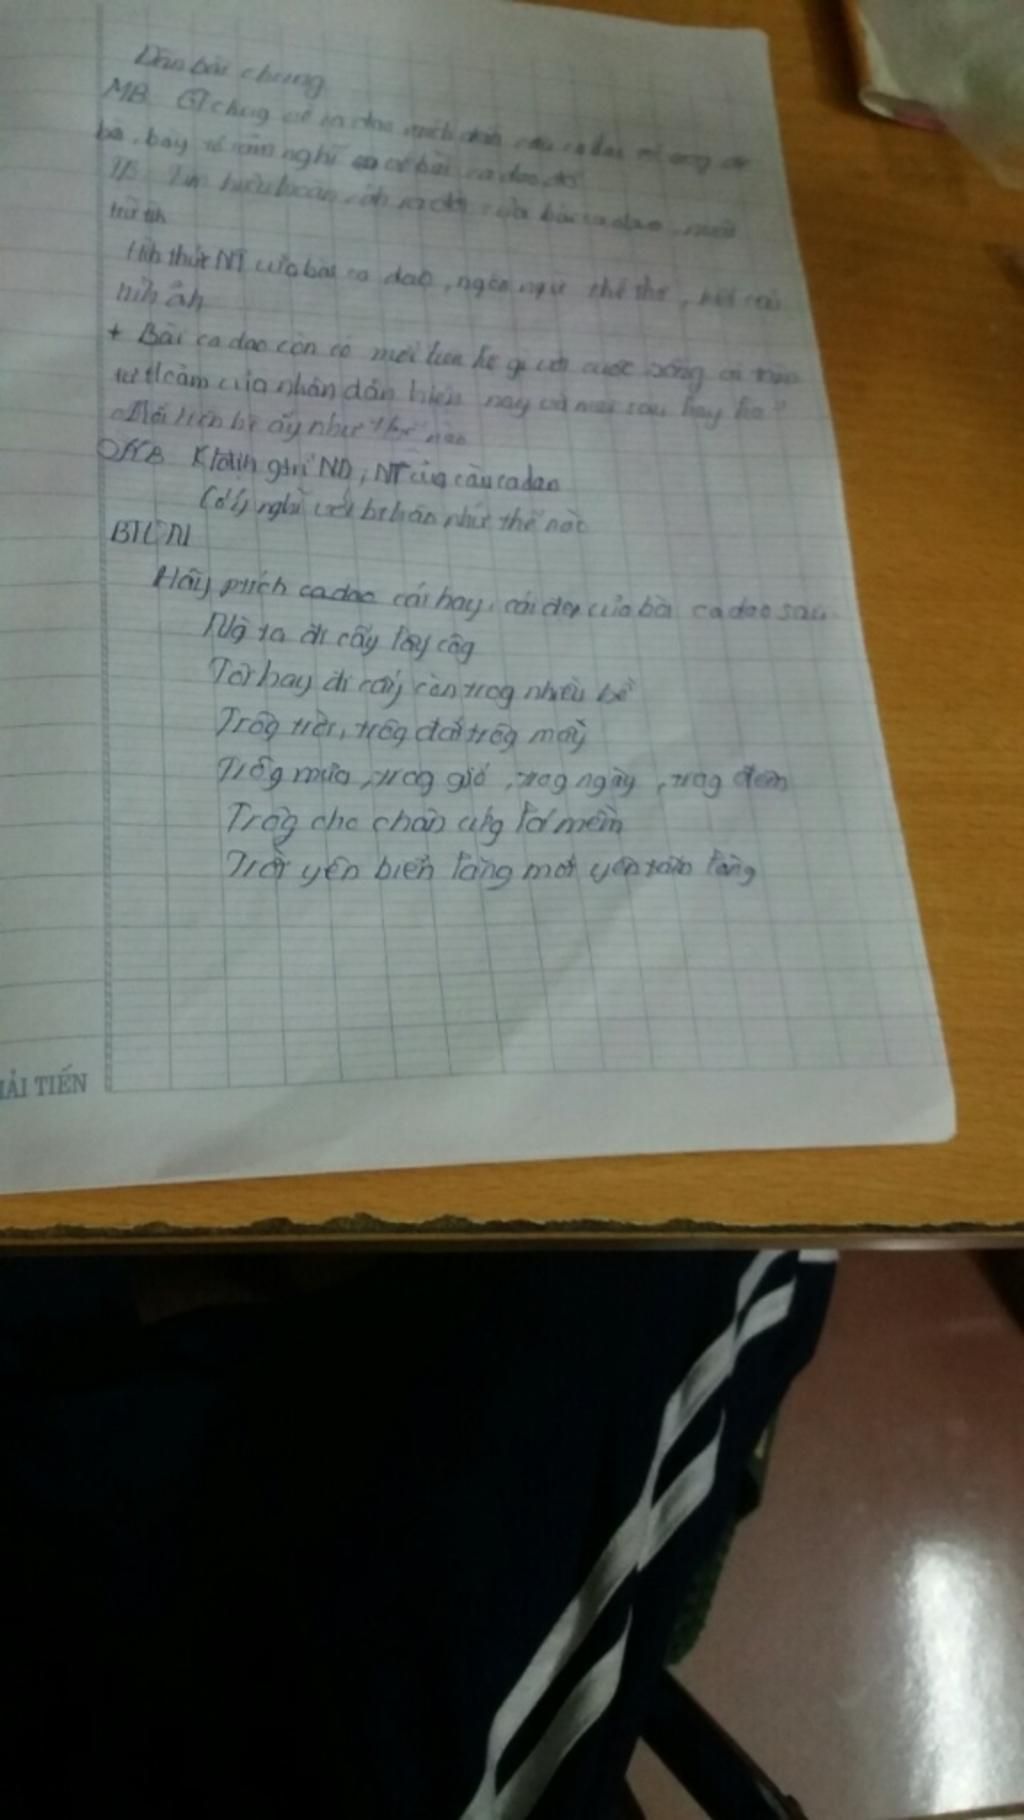 Dàn bài chung
MB. GT chug về ca dao
bà, bày tỏ cảm nghĩ về bài ca dao đó
TB. Tìm hiểu hoàn cảnh ra đời của bài ca dao
trữ tình
Hìh thức NT của bài ca dao, ngôn ngữ thể thơ, kết cấu
hìh ảh
+ Bài ca dao còn có mối liên hệ gì với cuộc sống
tìh cảm của nhân dân hiện nay và mai sau hay ko
Mối liên hệ ấy như thế nào
KB K/địh gtrị ND, NT của câu ca dao
Có ý nghĩ với bthân như thế nào
BTLN
Hãy ptích ca dao cái hay, cái đẹp của bài ca dao sau
Ng ta đi cấy lấy côg
Tôi nay đi cấy còn trôg nhiều bề
Trôg trời, trôg đất trôg mây
Trôg mưa, trôg gió, trôg ngày, trôg đêm
Trôg cho chân cứg đá mềm
Trời yên biển lặng mới yên tấm lòng
HẢI TIẾN